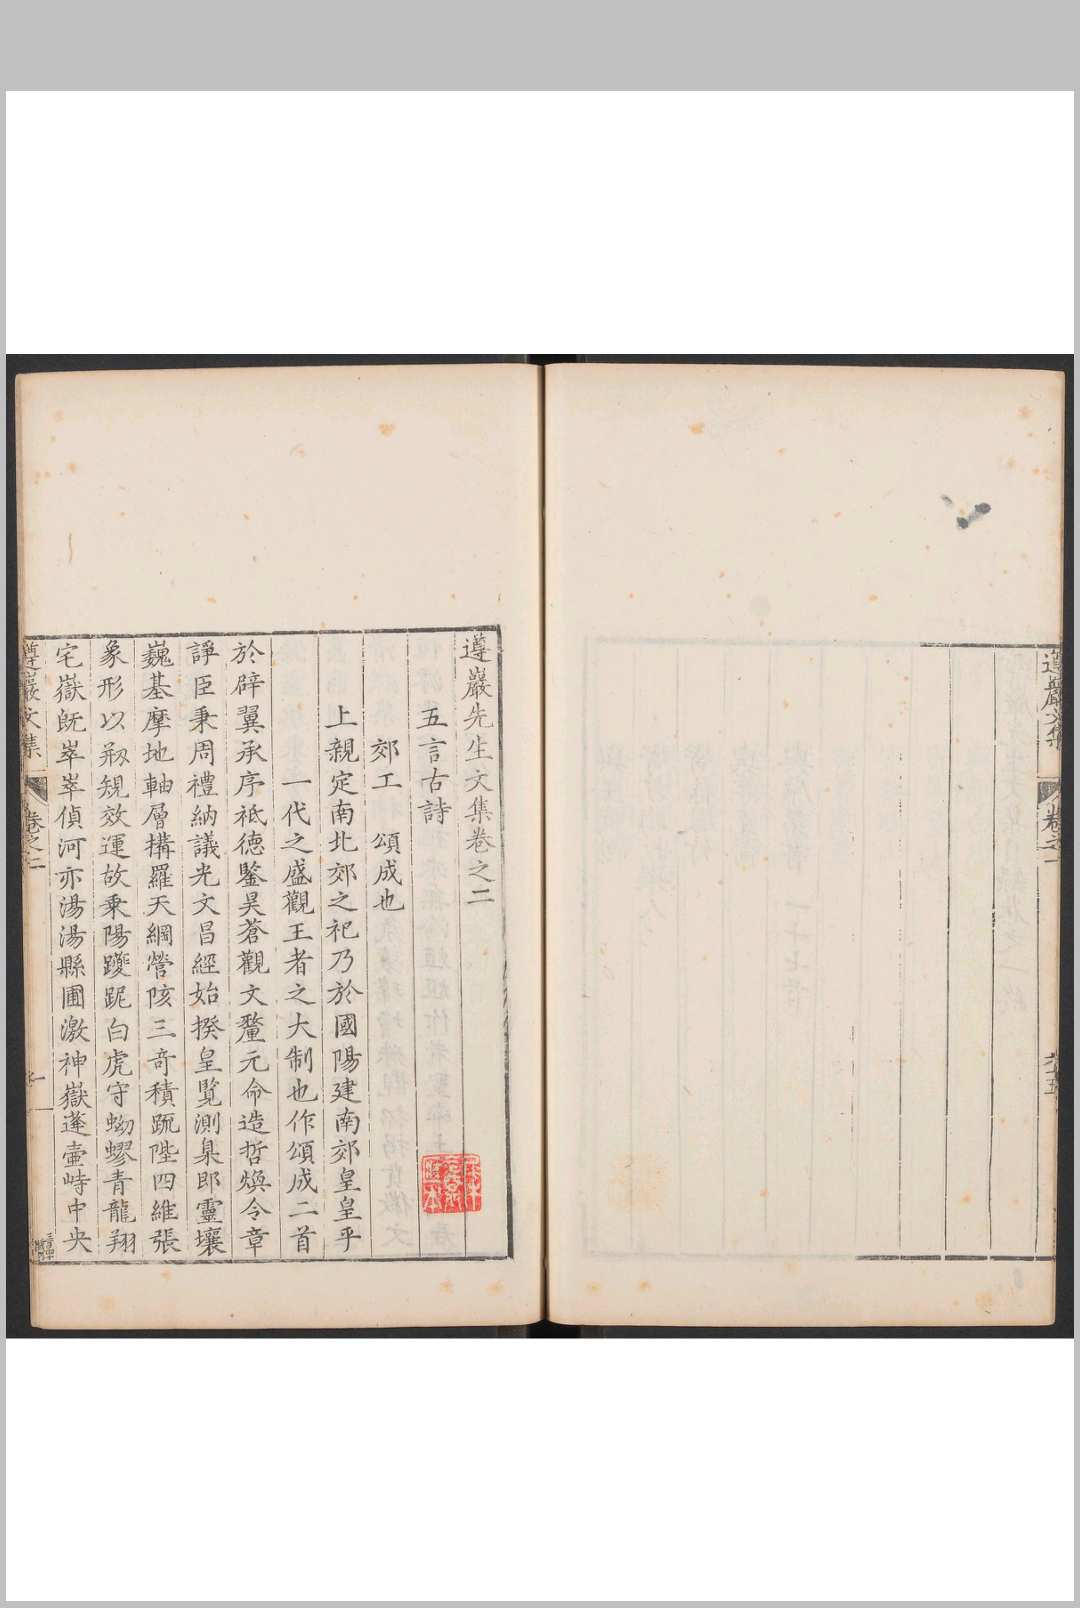 遵巖文集
卷之一
六十五
遵巖先生文集卷之二
五言古詩
郊工 頌成也
上親定南北郊之祀乃於國陽建南郊皇皇乎
一代之盛觀王者之大制也作頌成二首
於辟翼承序祗德鑒昊蒼觀文釐元命造哲煥令章
諍臣秉周禮納議光文昌經始揆皇覽測臬郎靈壤
巍基摩地軸層搆羅天綱營陔三竒積䟽陛四維張
象形以剏規效運故乗陽躨跜白虎守蚴蟉青龍翔
宅嶽旣崒崒偵河亦湯湯縣圃激神嶽蓬壷峙中央
遵巖文集
卷之二
一